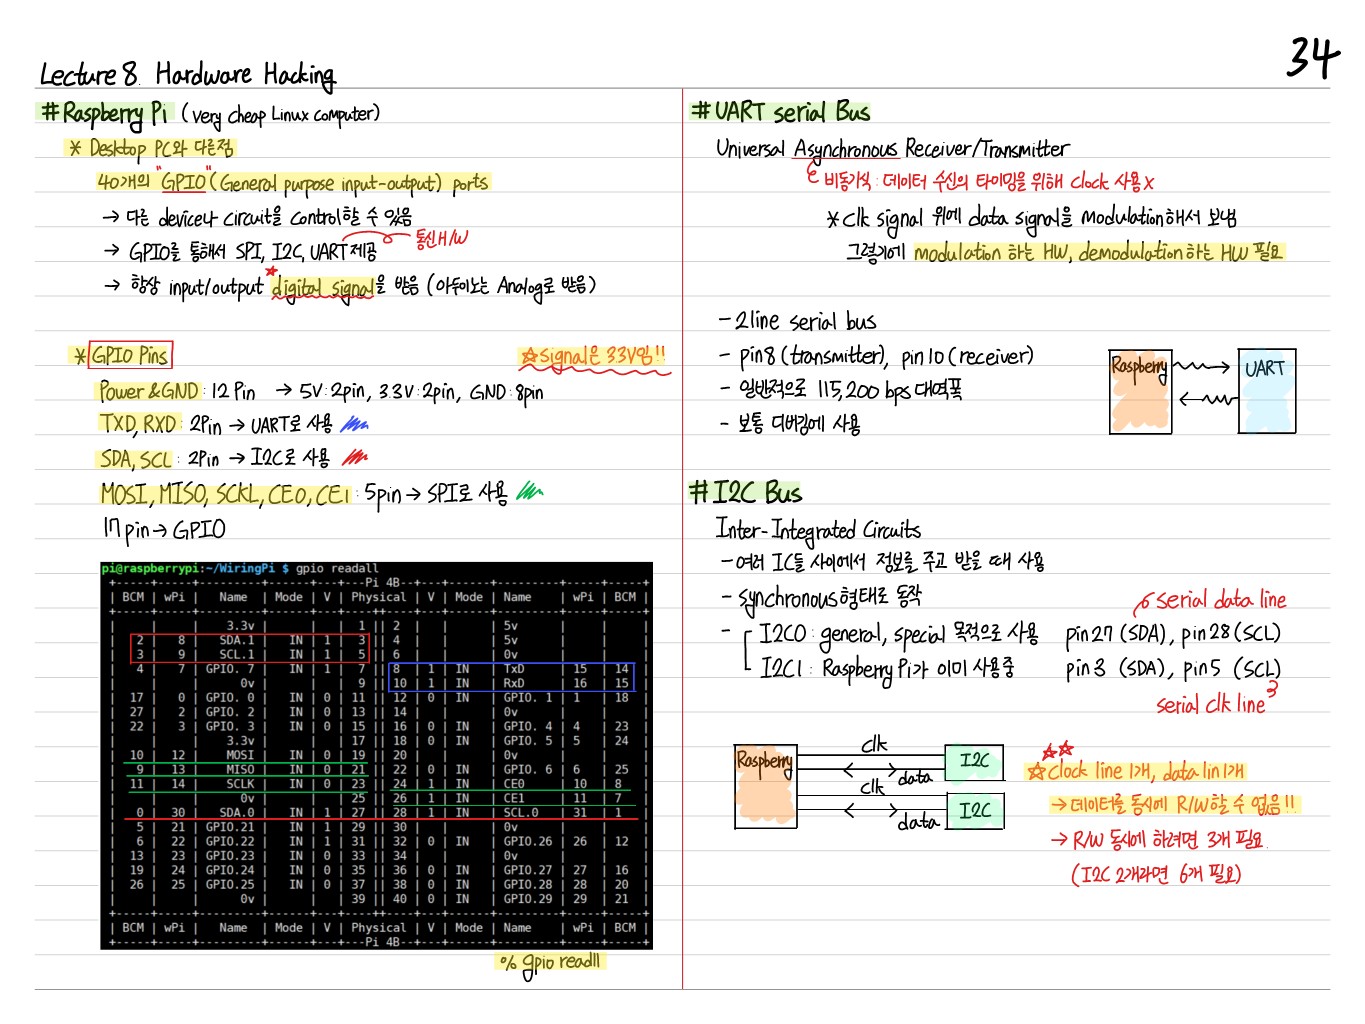 34
Lecture 8. Hardware Hacking
# Raspberry Pi (very cheap Linux computer)
* Desktop PC와 다른점
40개의 "GPIO" (General purpose input-output) ports
→ 다른 device나 circuit을 control할 수 있음
→ GPIO를 통해서 SPI, I2C, UART제공
통신 H/W
→ 항상 input/output digital signal을 받음 (아두이노는 Analog로 받음)
* GPIO Pins
☆Signal은 3.3V임!!
Power&GND: 12 Pin → 5V: 2pin, 3.3V: 2pin, GND: 8pin
TXD, RXD: 2Pin → UART로 사용
SDA, SCL: 2Pin → I2C로 사용
MOSI, MISO, SCKL, CE0, CE1: 5pin → SPI로 사용
17pin → GPIO
pi@raspberrypi:~/WiringPi $ gpio readall
+-----+-----+---------+------+---+---Pi 4B--+---+------+---------+-----+-----+
| BCM | wPi | Name | Mode | V | Physical | V | Mode | Name | wPi | BCM |
+-----+-----+---------+------+---+----++----+---+------+---------+-----+-----+
| | | 3.3v | | | 1 || 2 | | | 5v | | |
| 2 | 8 | SDA.1 | IN | 1 | 3 || 4 | | | 5v | | |
| 3 | 9 | SCL.1 | IN | 1 | 5 || 6 | | | 0v | | |
| 4 | 7 | GPIO. 7 | IN | 1 | 7 || 8 | 1 | IN | TxD | 15 | 14 |
| | | 0v | | | 9 || 10 | 1 | IN | RxD | 16 | 15 |
| 17 | 0 | GPIO. 0 | IN | 0 | 11 || 12 | 0 | IN | GPIO. 1 | 1 | 18 |
| 27 | 2 | GPIO. 2 | IN | 0 | 13 || 14 | | | 0v | | |
| 22 | 3 | GPIO. 3 | IN | 0 | 15 || 16 | 0 | IN | GPIO. 4 | 4 | 23 |
| | | 3.3v | | | 17 || 18 | 0 | IN | GPIO. 5 | 5 | 24 |
| 10 | 12 | MOSI | IN | 0 | 19 || 20 | | | 0v | | |
| 9 | 13 | MISO | IN | 0 | 21 || 22 | 0 | IN | GPIO. 6 | 6 | 25 |
| 11 | 14 | SCLK | IN | 0 | 23 || 24 | 1 | IN | CE0 | 10 | 8 |
| | | 0v | | | 25 || 26 | 1 | IN | CE1 | 11 | 7 |
| 0 | 30 | SDA.0 | IN | 1 | 27 || 28 | 1 | IN | SCL.0 | 31 | 1 |
| 5 | 21 | GPIO.21 | IN | 1 | 29 || 30 | | | 0v | | |
| 6 | 22 | GPIO.22 | IN | 1 | 31 || 32 | 0 | IN | GPIO.26 | 26 | 12 |
| 13 | 23 | GPIO.23 | IN | 0 | 33 || 34 | | | 0v | | |
| 19 | 24 | GPIO.24 | IN | 0 | 35 || 36 | 0 | IN | GPIO.27 | 27 | 16 |
| 26 | 25 | GPIO.25 | IN | 0 | 37 || 38 | 0 | IN | GPIO.28 | 28 | 20 |
| | | 0v | | | 39 || 40 | 0 | IN | GPIO.29 | 29 | 21 |
+-----+-----+---------+------+---+----++----+---+------+---------+-----+-----+
| BCM | wPi | Name | Mode | V | Physical | V | Mode | Name | wPi | BCM |
+-----+-----+---------+------+---+---Pi 4B--+---+------+---------+-----+-----+
% gpio readll
# UART serial Bus
Universal Asynchronous Receiver/Transmitter
비동기식: 데이터 수신의 타이밍을 위해 clock 사용 x
* clk signal 위에 data signal을 modulation해서 보냄
그렇기에 modulation 하는 HW, demodulation하는 HW 필요
- 2line serial bus
- pin8 (transmitter), pin10 (receiver)
- 일반적으로 115,200 bps 대역폭
- 보통 디버깅에 사용
Raspberry UART
# I2C Bus
Inter-Integrated Circuits
- 여러 IC들 사이에서 정보를 주고 받을 때 사용
- synchronous형태로 동작
serial data line
- I2C0: general, special 목적으로 사용 pin27 (SDA), pin28 (SCL)
I2C1: Raspberry Pi가 이미 사용중 pin3 (SDA), pin5 (SCL)
serial clk line
Raspberry clk data I2C
clk data I2C
☆clock line 1개, data lin 1개
→ 데이터를 동시에 R/W할 수 없음!!
→ R/W 동시에 하려면 3개 필요.
(I2C 2개라면 6개 필요)